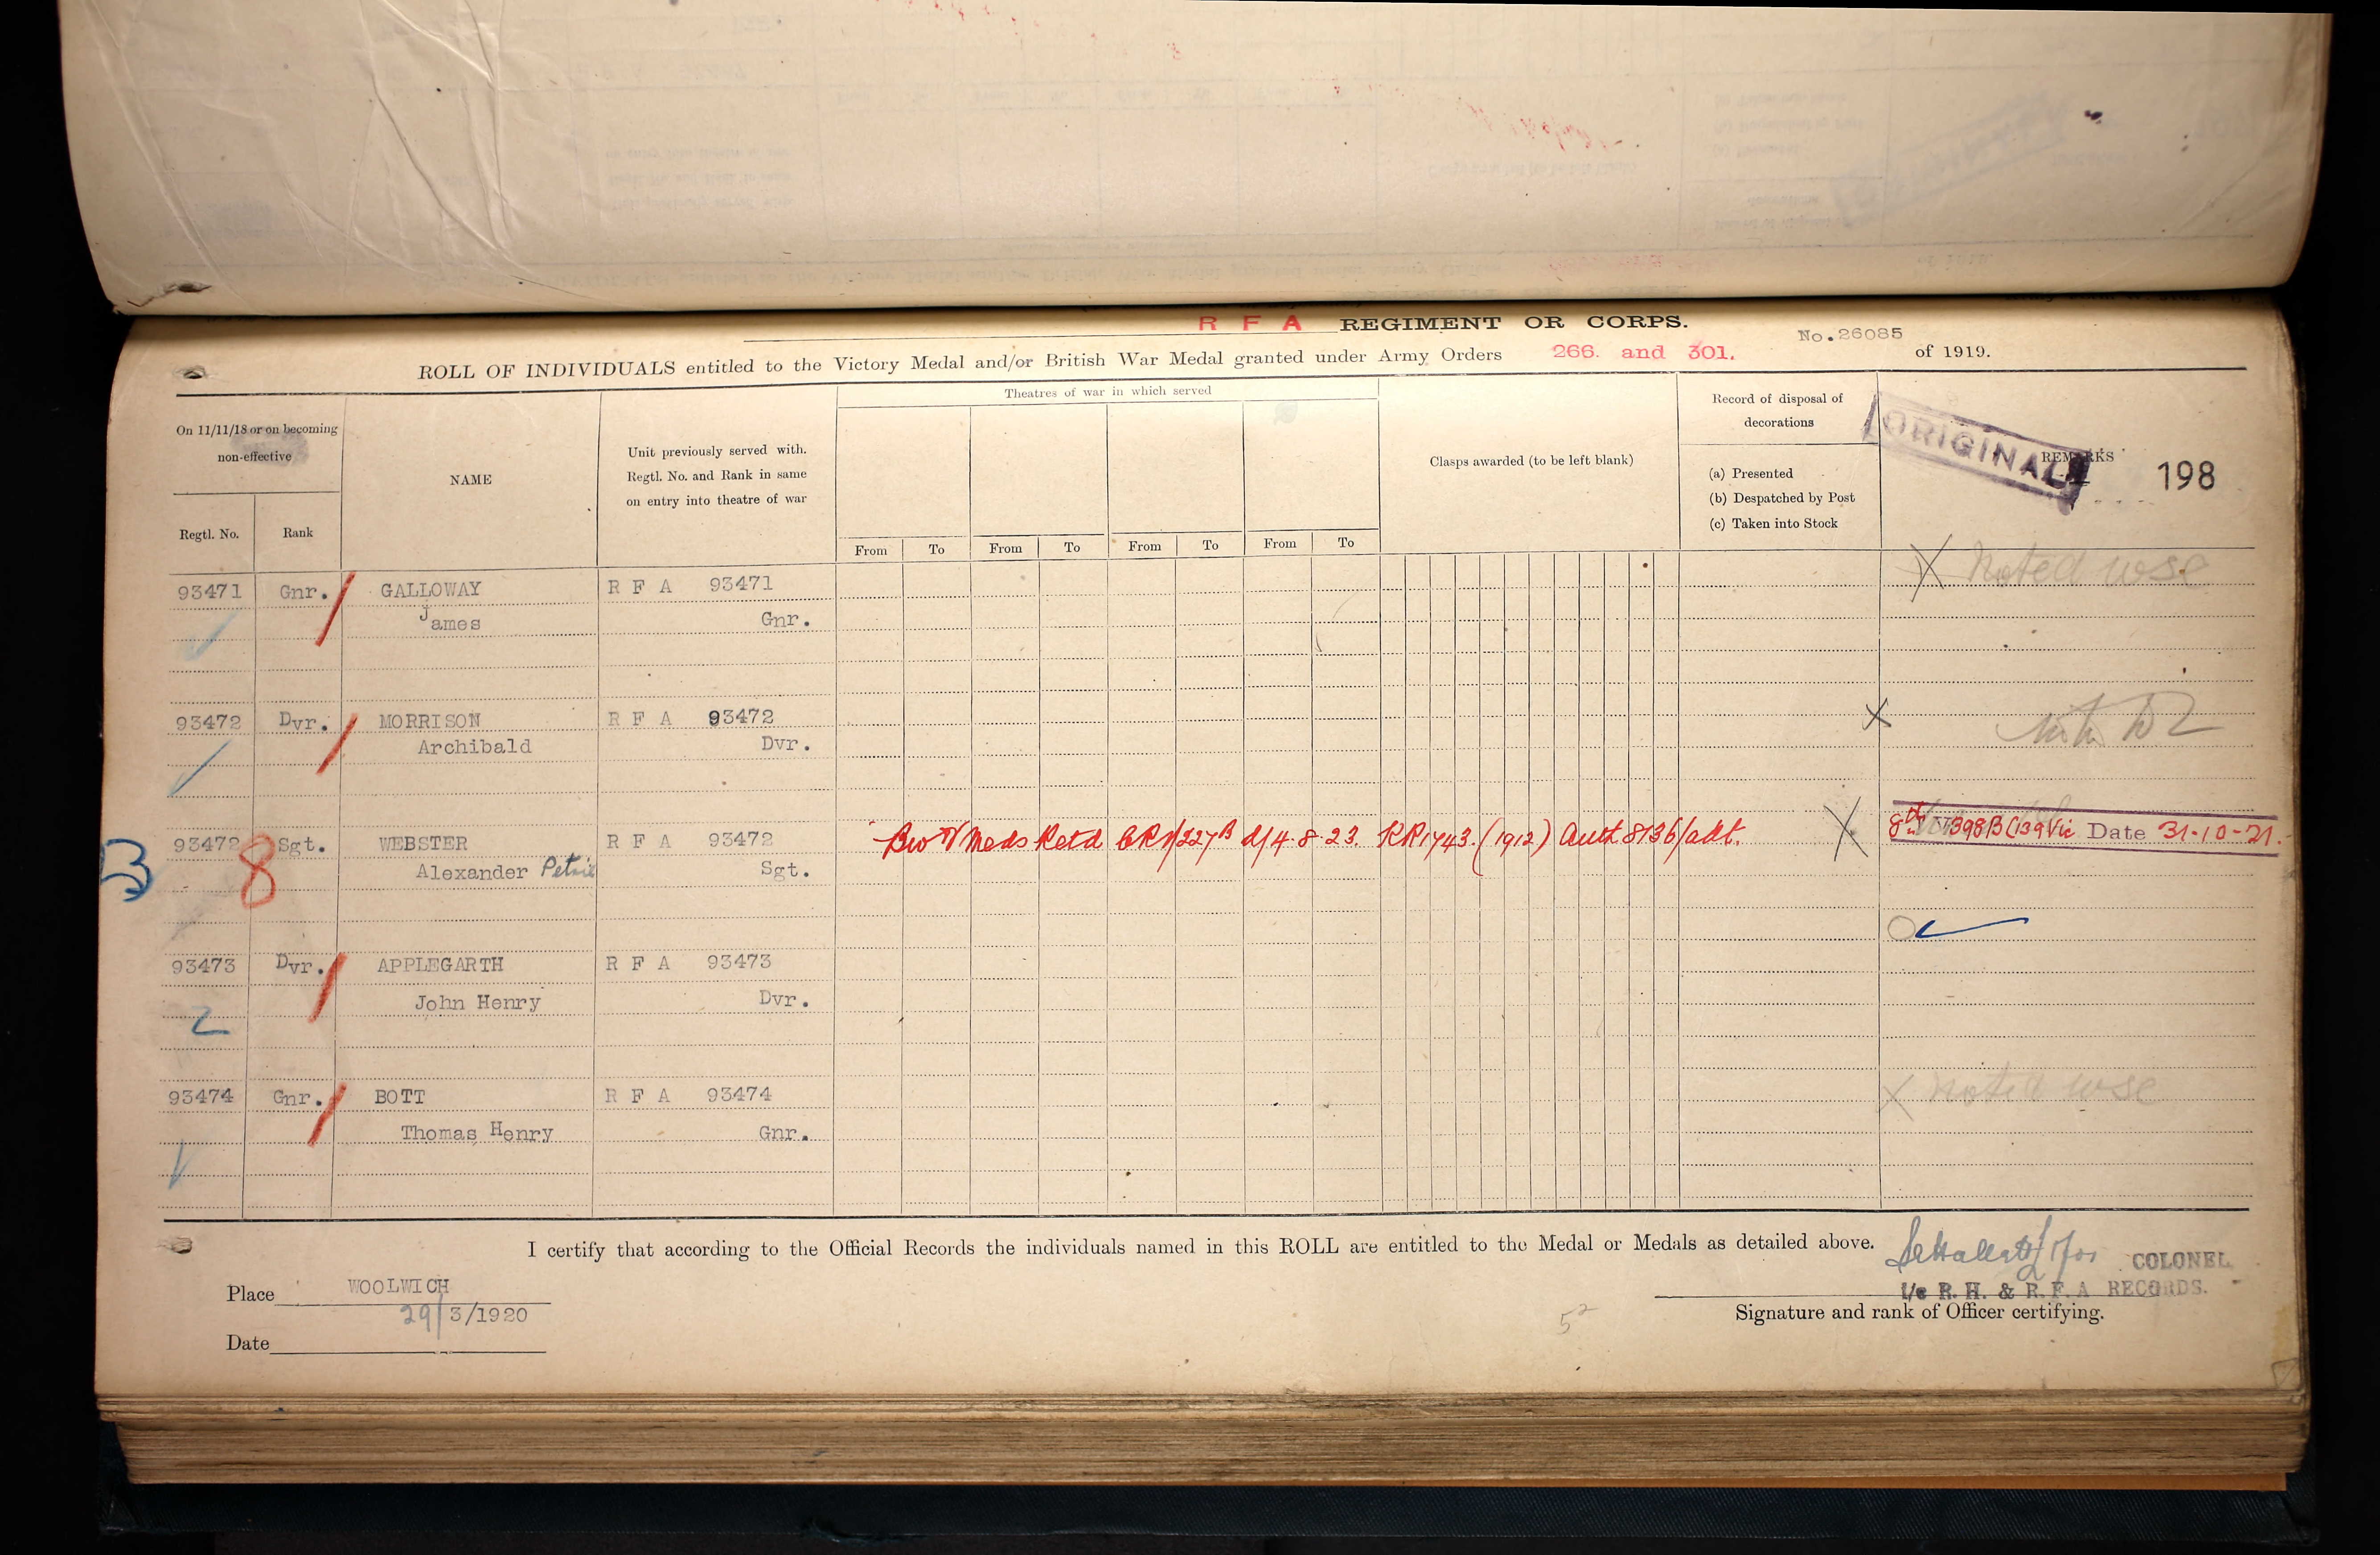 R F A REGIMENT OR CORPS.
No. 26085
ROLL OF INDIVIDUALS entitled to the Victory Medal and/or British War Medal granted under Army Orders 266. and 301. of 1919.
On 11/11/18 or on becoming
non-effective
Regtl. No.
Rank
NAME
Unit previously served with.
Regtl. No. and Rank in same
on entry into theatre of war
Theatres of war in which served
From To From To From To From To
Clasps awarded (to be left blank)
Record of disposal of
decorations
(a) Presented
(b) Despatched by Post
(c) Taken into Stock
ORIGINAL
REMARKS
198
93471 Gnr. GALLOWAY R F A 93471 X Noted wse
James Gnr.
93472 Dvr. MORRISON R F A 93472 X
Archibald Dvr.
93472 8 Sgt. WEBSTER R F A 93472 Meds Retd 4.8.23. KR1743.(1912) Auth 8136/adt. X Date 31-10-21.
Alexander Petrie Sgt.
3
93473 Dvr. APPLEGARTH R F A 93473
John Henry Dvr.
2
93474 Gnr. BOTT R F A 93474 X Noted wse
Thomas Henry Gnr.
I certify that according to the Official Records the individuals named in this ROLL are entitled to the Medal or Medals as detailed above.
for COLONEL
i/c R. H. & R. F. A RECORDS.
Place WOOLWICH
29/3/1920
Date
52
Signature and rank of Officer certifying.